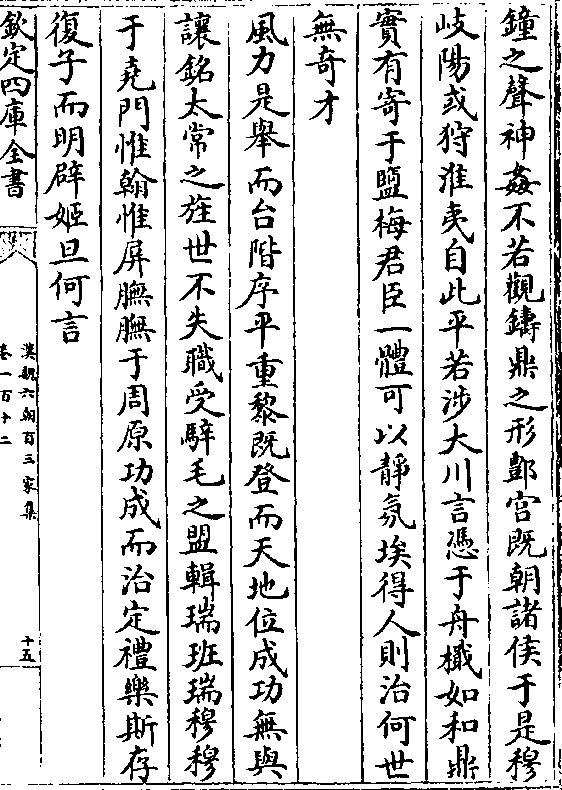 鐘之聲神姦不若觀鑄鼎之形酆宫既朝諸侯于是穆
岐陽或狩淮夷自此平若涉大川言憑于舟檝如和鼎
實有寄于鹽梅君臣一體可以靜氛埃得人則治何世
無奇才
風力是舉而台階序平重黎既登而天地位成功無與
讓銘太常之旌世不失職受騂毛之盟輯瑞班瑞穆穆
于堯門惟翰惟屏膴膴于周原功成而治定禮樂斯存
復子而明辟姬旦何言
欽定四庫全書
漢魏六朝百三家集
卷一百十二
十五